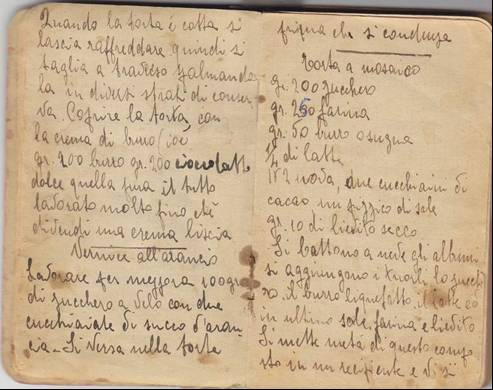 Quando la torta è cotta si
lascia raffreddare quindi si
taglia a traverso spalmando
la in diversi strati di conser
va. Coprire la torta, con
la crema di burro (cioè
gr. 200 burro gr. 200 cioccolatto
dolce quella pura il tutto
lavorato molto fino chè
divendi una crema liscia
Vernice all'arancio
Lavorare per mezzora 100 gr
di zucchero a velo con due
cucchiaiate di succo d'aran
cia - Si versa nella torta
prima che si condensa
Torta a mosaico
gr. 200 zucchero
gr. 250 farina
gr. 50 burro o sugna
di latte
N° 2 uova, due cucchiaini di
cacao un pizzico di sale
gr. 10 di lievito secco
Si battono a neve gli albumi
si aggiungono i tuorli lo zucche
ro, il burro liquefatto il latte ed
in ultimo sale farina e lievito
Si mette metà di questo compo
sto in un recipiente e vi si